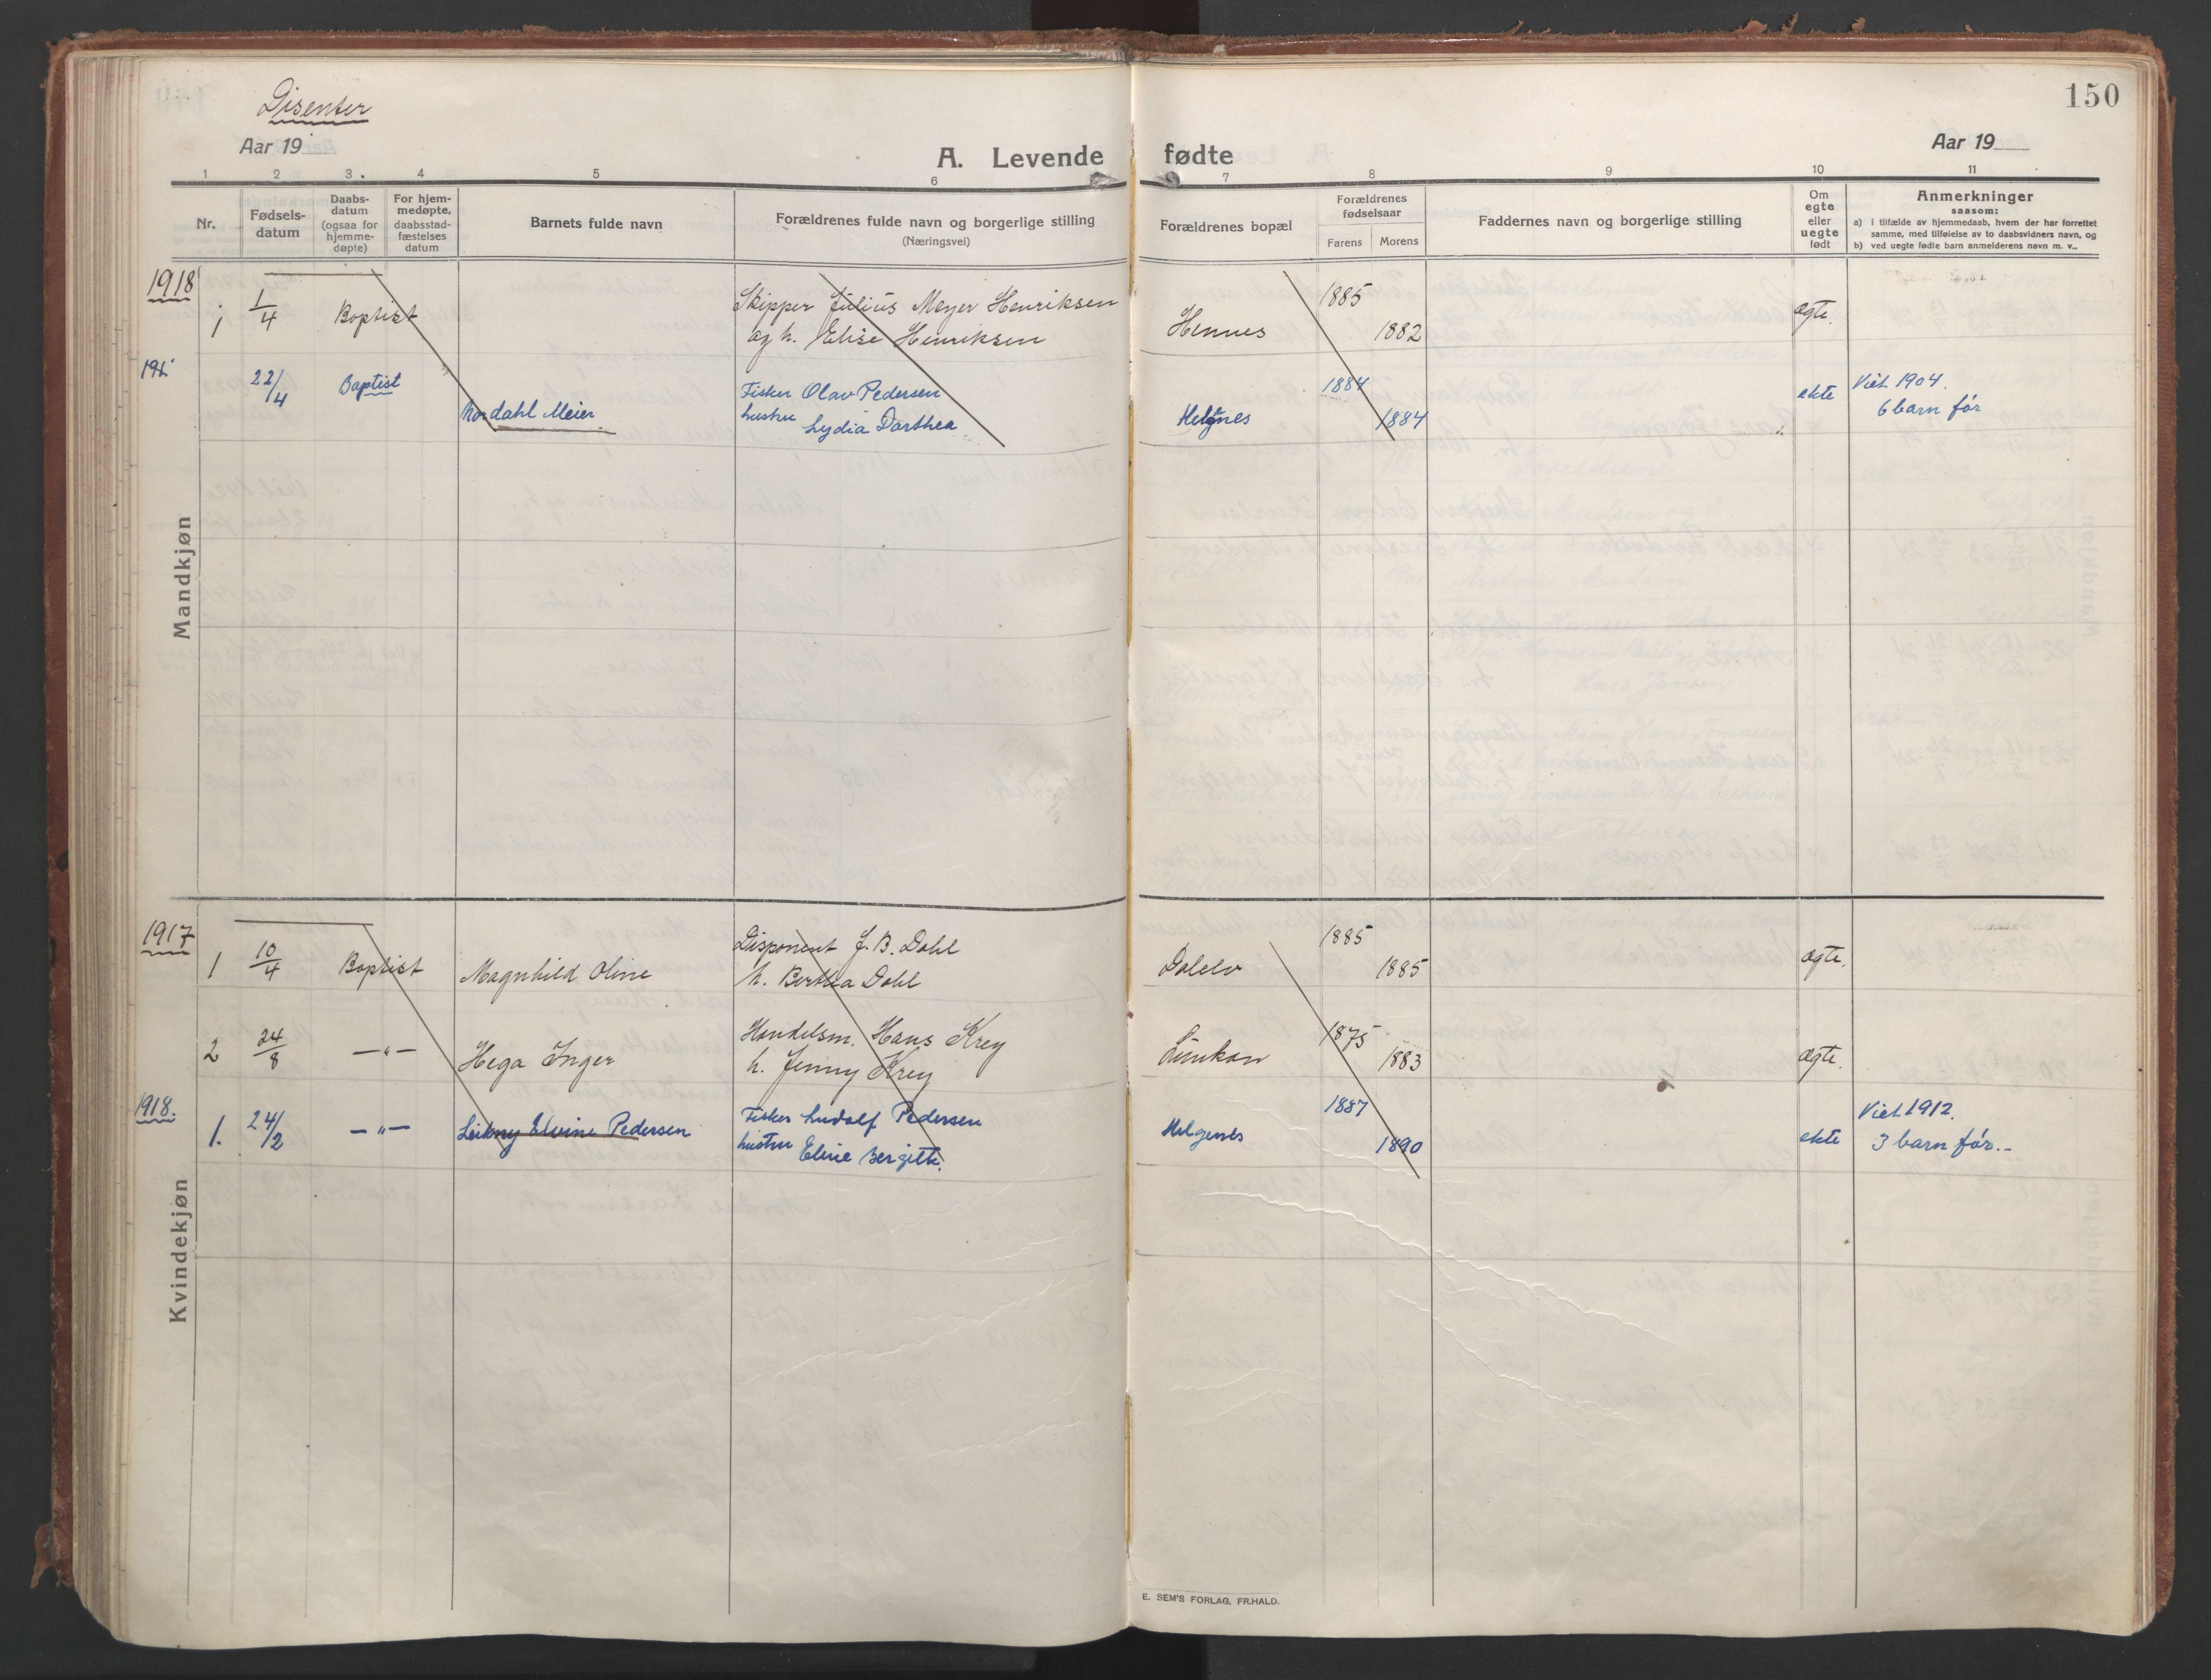 Disenter
150
Aar 19
A. Levende fødte
Aar 19
1 2 3. 4 5 6 7 8 9 10 11
Nr.
Fødsels-
datum
Daabs-
datum
(ogsaa for
hjemme-
døpte)
For hjem-
medøpte,
daabsstad-
fæstelses
datum
Barnets fulde navn
Forældrenes fulde navn og borgerlige stilling
(Næringsvei)
Forældrenes bopæl
Forældrenes
fødselsaar
Farens Morens
Faddernes navn og borgerlige stilling
Om
egte
eller
uegte
født
Anmerkninger
saasom:
a) i tilfælde av hjemmedaab, hvem der har forrettet
samme, med tilføielse av to daabsvidners navn, og
b) ved uegte fødte barn anmelderens navn m. v..
Mandkjøn
1918
1 1/4 Baptist Skipper Julius Meyer Henriksen 1885 ægte.
og h. Elise Henriksen Hennes 1882
191
22/4 Baptist Nordahl Meier Fisker Olav Pedersen 1884 ekte Viet 1904.
hustru Lydia Dorthea Helgnes 1884 6 barn før
Kvindekjøn
1917
1 10/4 Baptist Magnhild Oline Disponent J. B. Dahl 1885 ægte.
h. Berthea Dahl 1885
2 24/8 —"— Hega Inger Handelsm. Hans Krey 1875 ægte.
h. Jenny Krey 1883
1918.
1. 24/2 —"— Leikny Elvine Pedersen Fisker Ludolf Pedersen 1887 ekte Viet 1912.
hustru Eline Bergitte. Helgenes 1890 3 barn før.-
E. SEM'S FORLAG, FR.HALD.